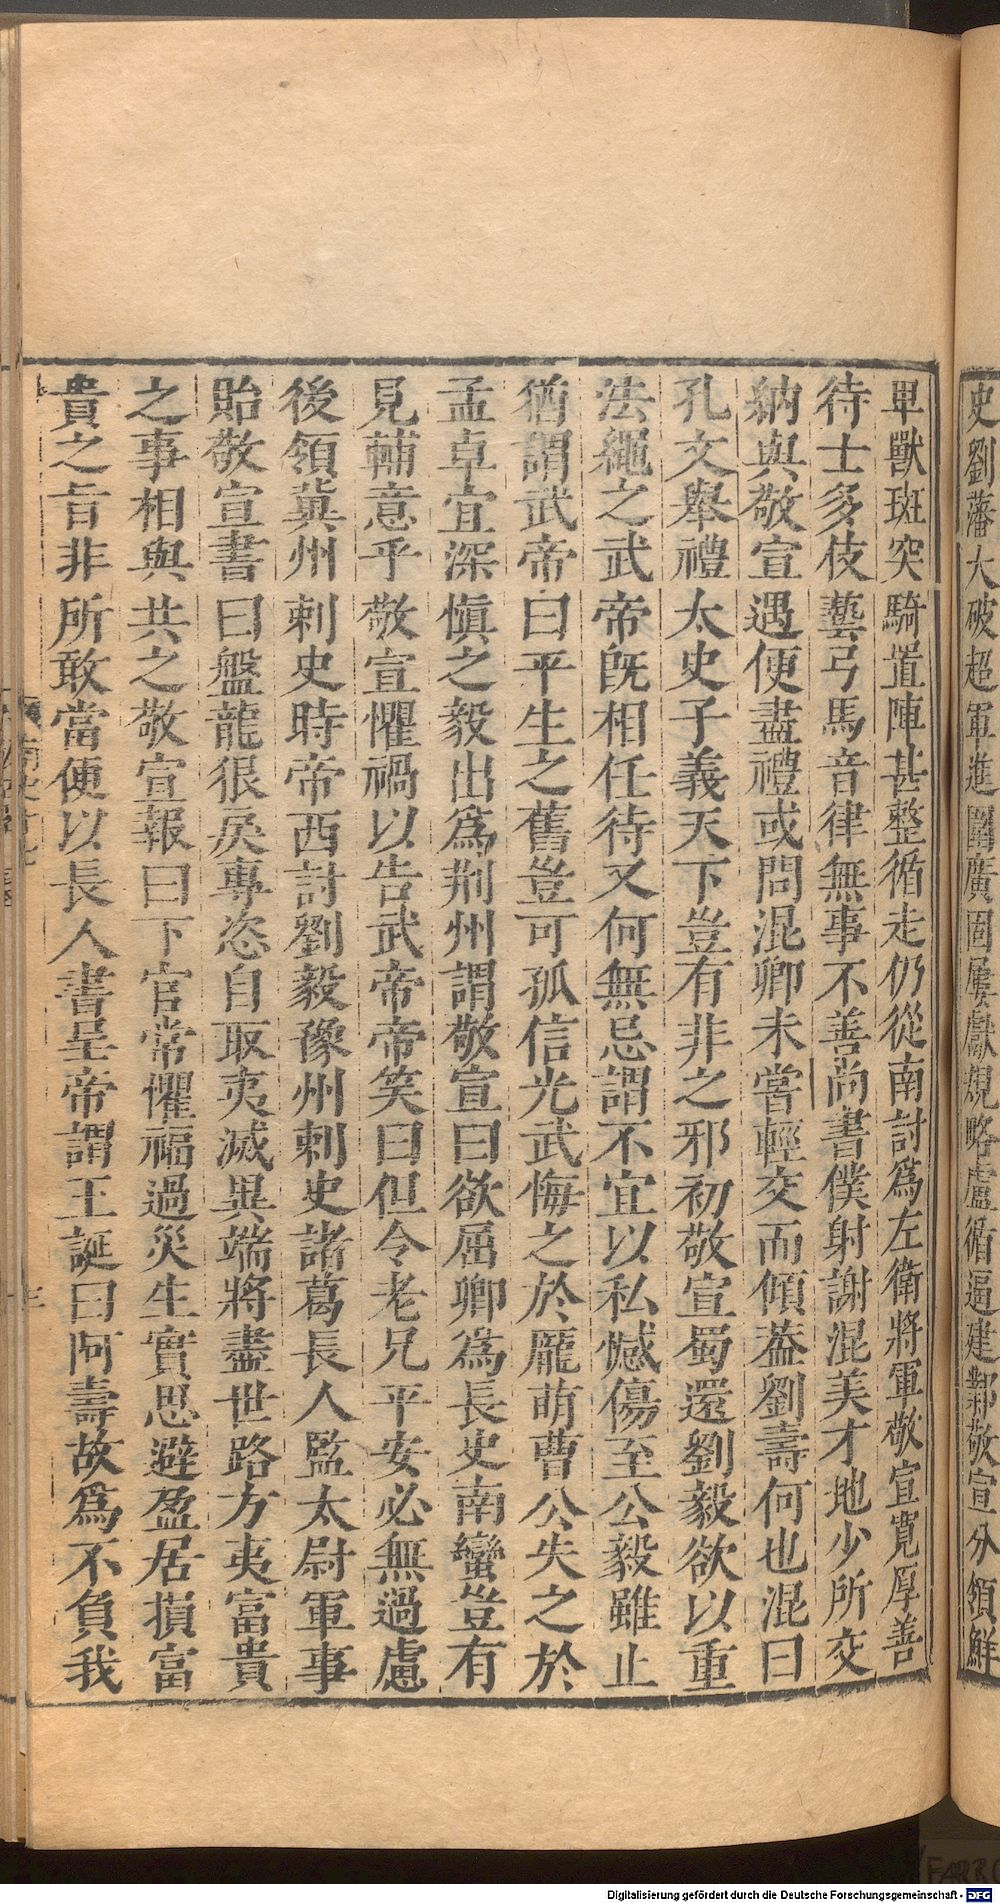 史劉藩大破超軍進圍廣固屢獻規略盧循逼建鄴敬宣分領鮮
卑獸斑突騎置陣甚整循走仍從南討爲左衛將軍敬宣寬厚善
待士多伎藝弓馬音律無事不善尚書僕射謝混美才地少所交
納與敬宣遇便盡禮或問混卿未嘗輕交而傾蓋劉壽何也混曰
孔文舉禮太史子義天下豈有非之邪初敬宣蜀還劉毅欲以重
法繩之武帝旣相任待又何無忌謂不宜以私憾傷至公毅雖止
猶謂武帝曰平生之舊豈可孤信光武悔之於龐萌曹公失之於
孟卓宜深愼之毅出爲荆州謂敬宣曰欲屈卿爲長史南蠻豈有
見輔意乎敬宣懼禍以告武帝帝笑曰但令老兄平安必無過慮
後領冀州刺史時帝西討劉毅豫州刺史諸葛長人監太尉軍事
貽敬宣書曰盤龍狠戾專恣自取夷滅異端將盡世路方夷富貴
之事相與共之敬宣報曰下官常懼福過災生實思避盈居損富
貴之旨非所敢當便以長人書呈帝謂王誕曰阿壽故爲不負我
Digitalisierung gefördert durch die Deutsche Forschungsgemeinschaft - DFG